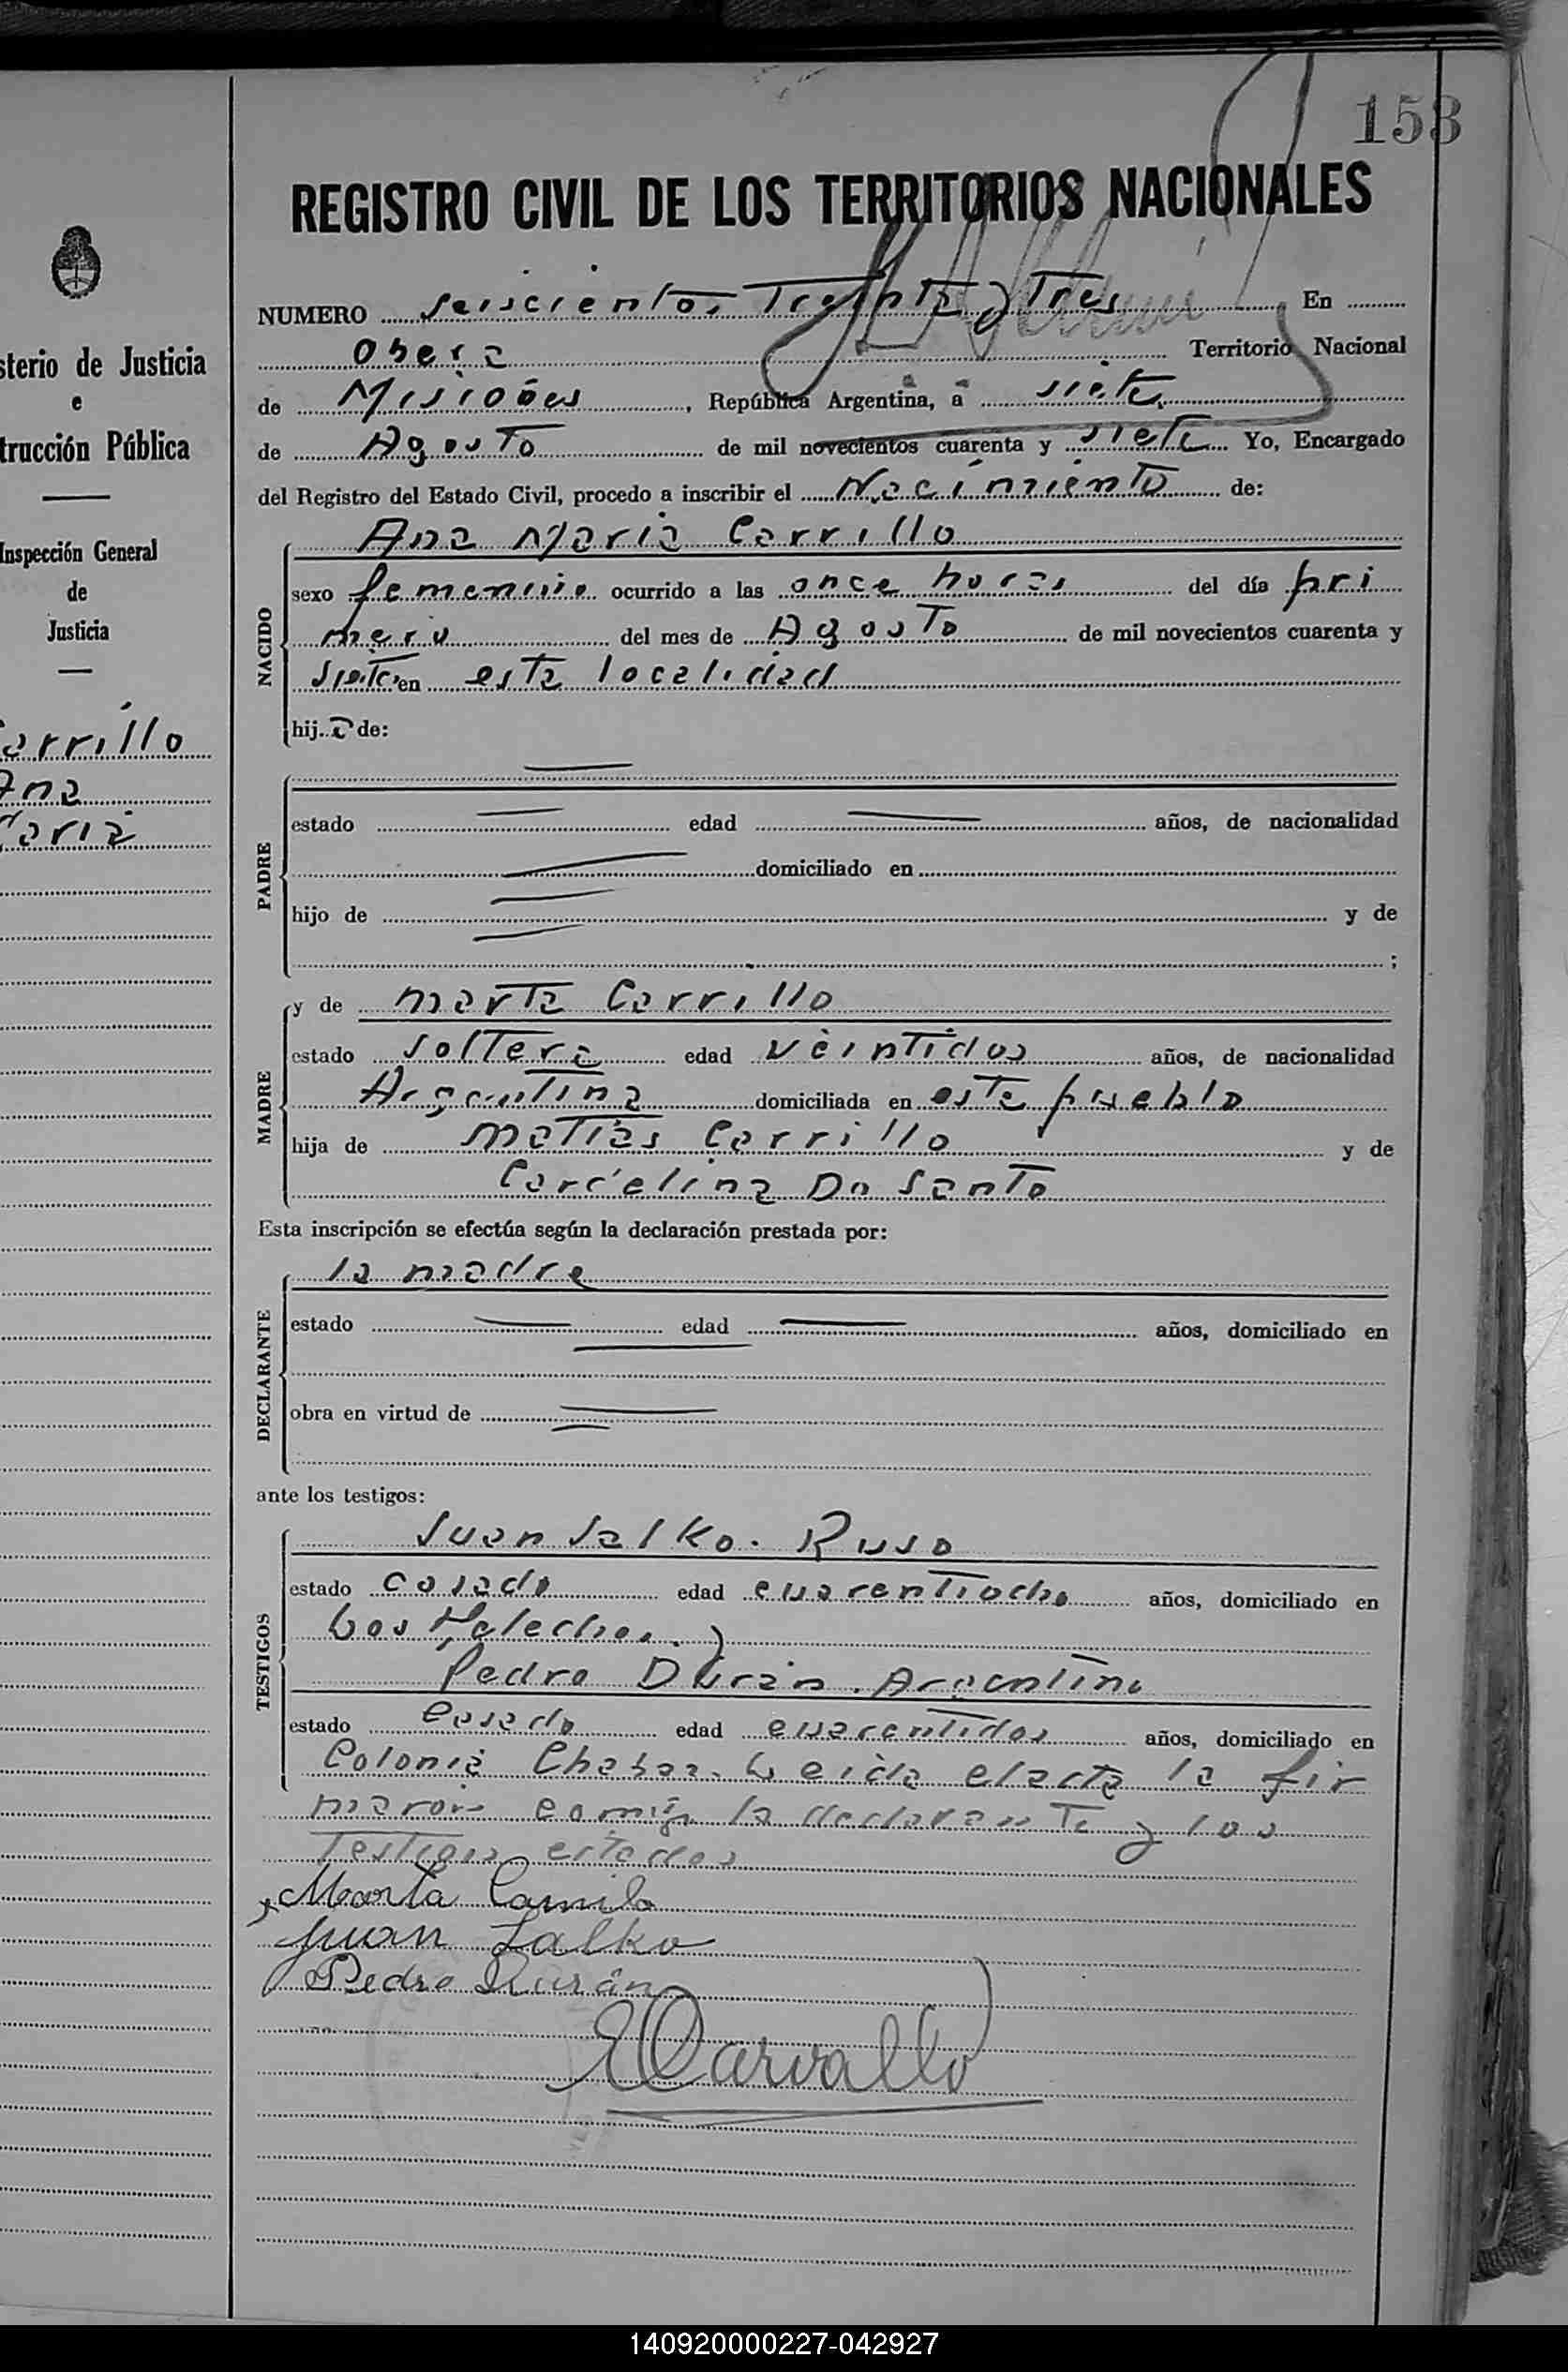 153
REGISTRO CIVIL DE LOS TERRITORIOS NACIONALES
sterio de Justicia
e
trucción Pública
Inspección General
de
Justicia
arrillo
Ana
Maria
NUMERO Seiscientos Treinta y Tres En
Obera Territorio Nacional
de Misiones, República Argentina, a siete
de Agosto de mil novecientos cuarenta y siete Yo, Encargado
del Registro del Estado Civil, procedo a inscribir el Nacimiento de:
NACIDO
Ana Maria Carrillo
sexo femenino ocurrido a las once horas del día pri
mero del mes de Agosto de mil novecientos cuarenta y
siete en esta localidad
hija de:
PADRE
estado edad años, de nacionalidad
domiciliado en
hijo de y de
;
MADRE
y de Marta Carrillo
estado soltera edad veintidos años, de nacionalidad
Argentina domiciliada en este pueblo
hija de Matías Carrillo y de
Carcelina Do Santo
Esta inscripción se efectúa según la declaración prestada por:
DECLARANTE
la madre
estado edad años, domiciliado en
obra en virtud de
ante los testigos:
TESTIGOS
Juan Salko. Ruso
estado casado edad cuarentiocho años, domiciliado en
Los Helechos. y
Pedro Durán. Argentino
estado casado edad cuarentidos años, domiciliado en
Colonia Leida el acta la fir
maron conmigo la declarante y los
Testigos citados
Marta Carrilo
Juan Salko
Pedro Durán
ECarvallo
140920000227-042927